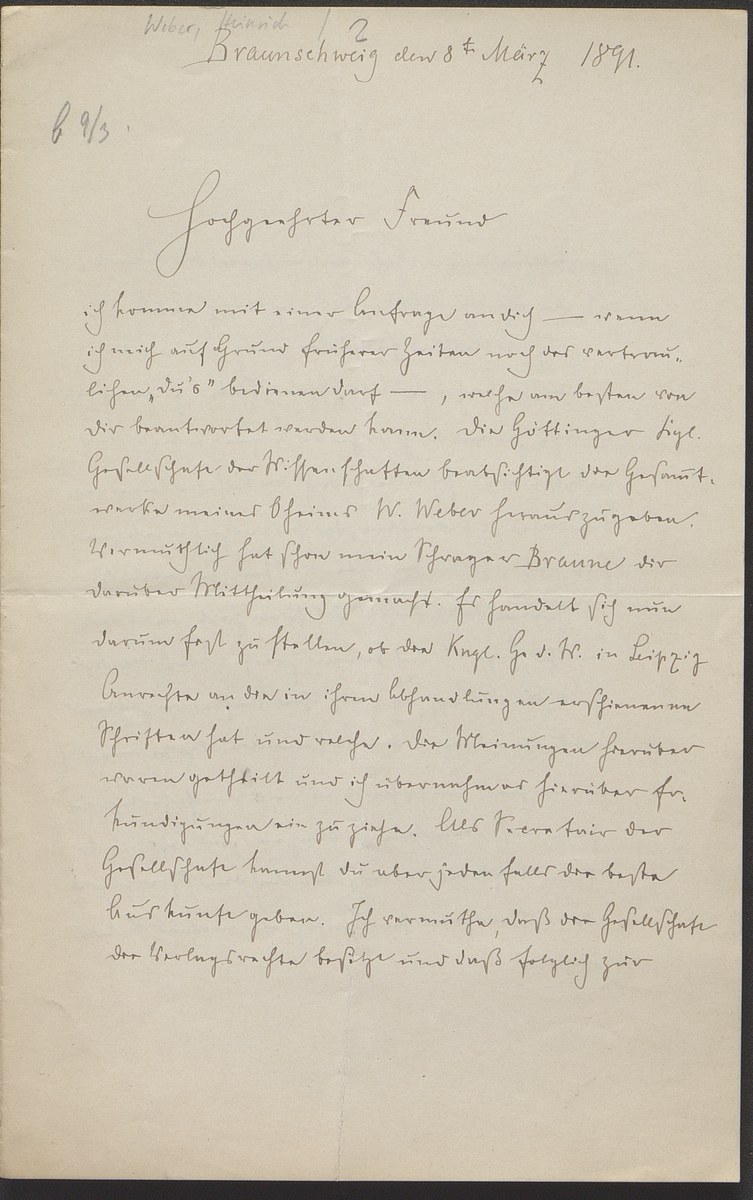 Weber, Heinrich / 2
Braunschweig den 8t März 1891.
b 9/3.
Hochgeehrter Freund
ich komme mit einer Anfrage an dich — wenn
ich mich auf Grund früherer Zeiten noch des vertrau„
lichen „du's" bedienen darf — , welche am besten von
dir beantwortet werden kann. Die Göttinger Kgl.
Gesellschaft der Wissenschaften beabsichtigt die Gesam̅t„
werke meines Oheims W. Weber herauszugeben.
Vermuthlich hat schon mein Schwager Braune dir
darüber Mittheilung gemacht. Es handelt sich nun
darum fest zu stellen, ob die Kngl. Ge d. W. in Leipzig
Anrechte an die in ihren Abhandlungen erschienenen
Schriften hat und welche. Die Meinungen hierüber
waren getheilt und ich übernahm es hierüber Er„
kundigungen ein zu ziehn. Als Secretair der
Gesellschaft kannst du aber jeden falls die beste
Auskunft geben. Ich vermuthe, daß die Gesellschaft
die Verlagsrechte besitzt und daß folglich zur